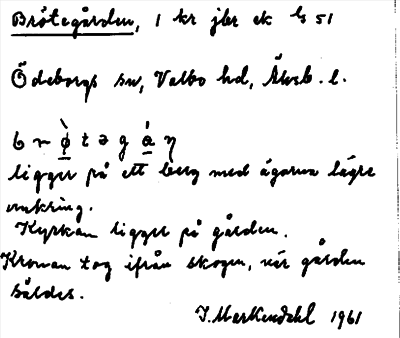 Brötegården, 1 kr jbr ek b 51
Ödeborgs sn, Valbo hd, Älvsb. l.
b r ö̀ t ə g á̱ ṇ
ligger på ett berg med ägorna lägre
omkring.
Kyrkan ligger på gården.
Kronan tog ifrån skogen, när gården
såldes.
J. Markendahl 1961